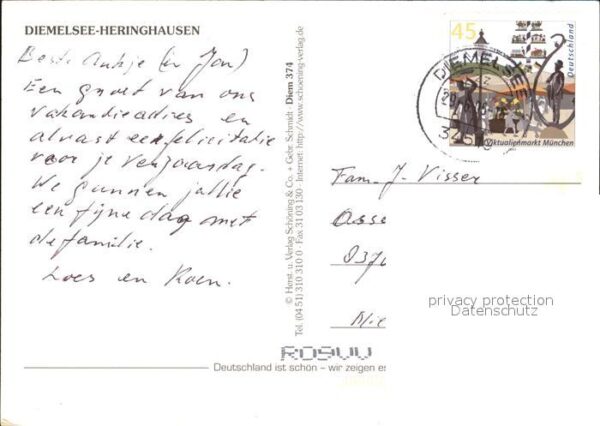 DIEMELSEE-HERINGHAUSEN
Beste Ankje (en Jan)
Een groet van ons
vakantieadres en
alvast een felicitatie
voor je verjaardag.
We gunnen jullie
een fijne dag met
de familie.
Loes en Koen.
© Herst. u. Verlag Schöning & Co. + Gebr. Schmidt · Diem 374
Tel. (04 51) 310 310 0 · Fax 31 03 130 · Internet: http://www.schoening-verlag.de
45
Deutschland
Viktualienmarkt München
DIEMELSEE
Fam. J. Visser
Asse
privacy protection
Datenschutz
Deutschland ist schön – wir zeigen es